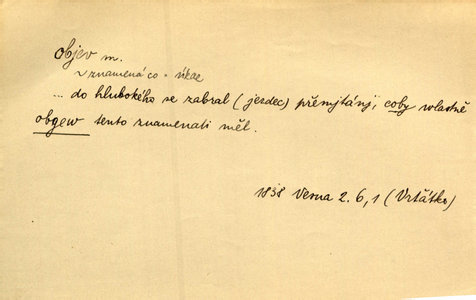 objev m.
~ znamená co • úkaz
... do hlubokého se zabral (jezdec) přemjtánj, coby vlastně
obgew tento znamenati měl.
1838 Vesna 2. 6, 1 (Vrťátko)